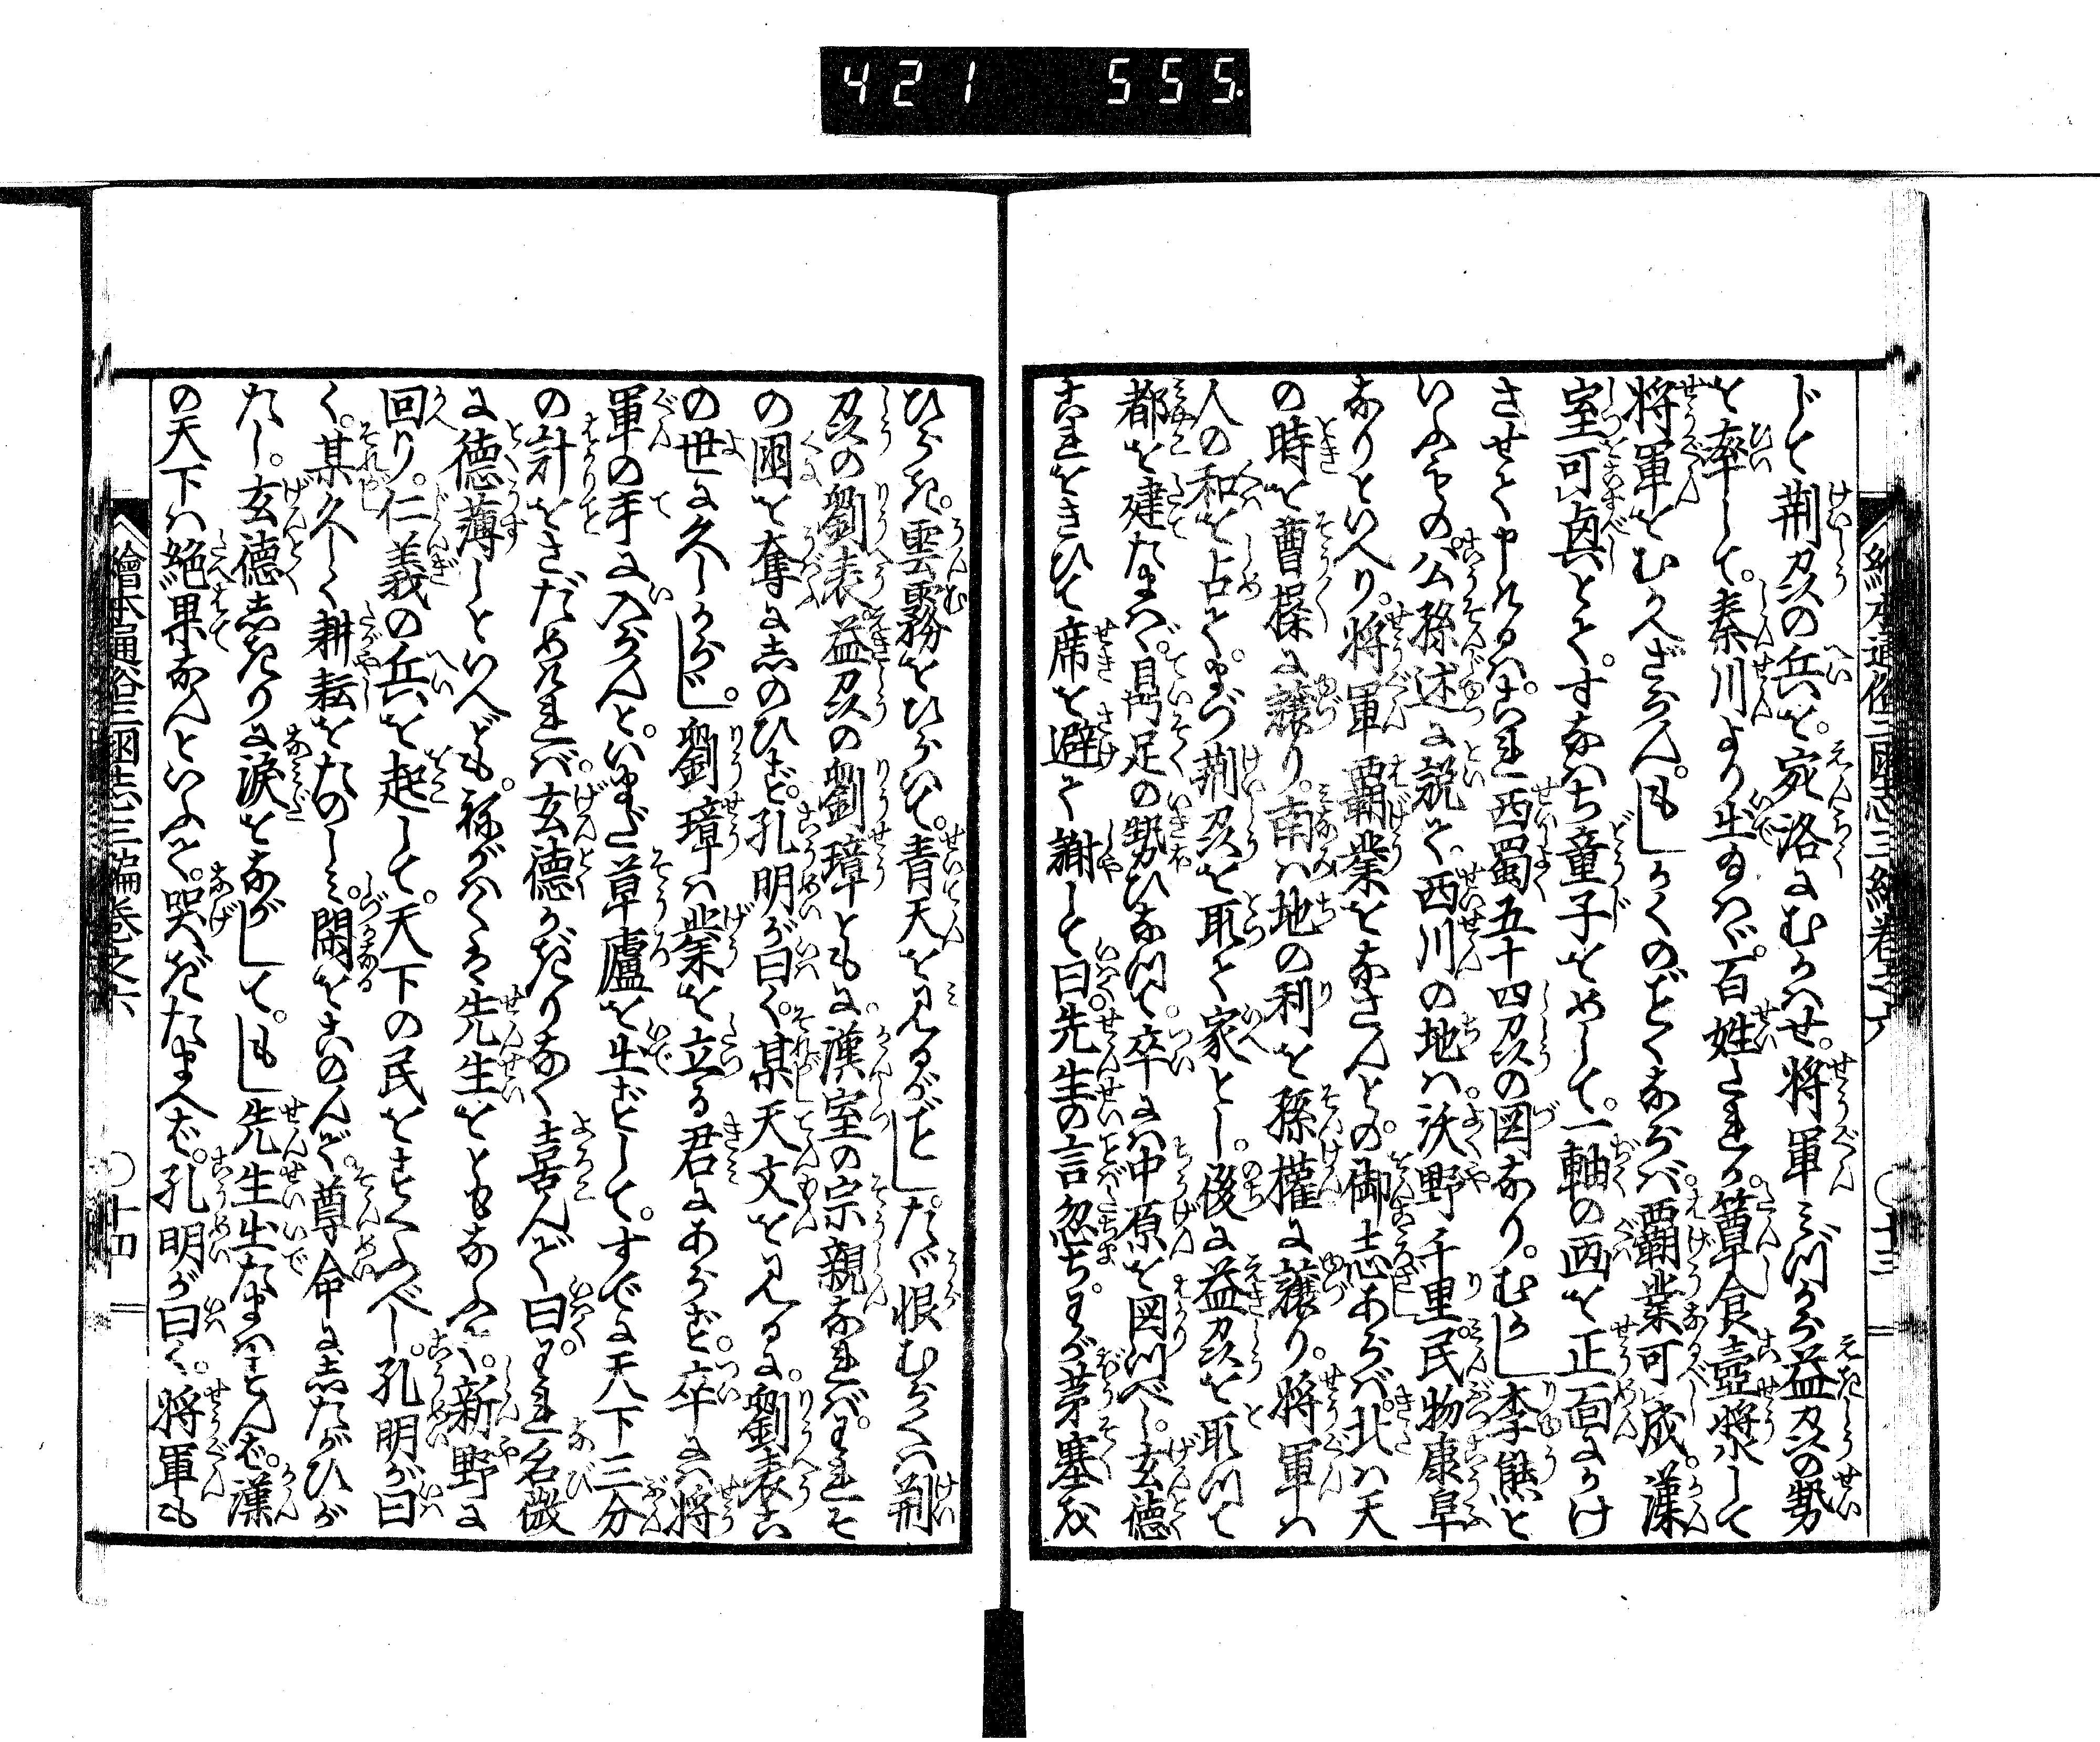 421 555.
繪本通俗三國志三編巻之六 ○十三
じて荊州の兵を。宛洛にむかへせ。将軍みづから益州の勢
を率して。秦川より出給はゞ。百姓たれか。簞食壺漿して
将軍をむかへざらん。もしかくのごとくならば。覇業可成。漢
室可興とて。すなはち童子をめして。一軸の画を正面にかけ
させて申けるは。これ西蜀五十四州の図なり。むかし李熊と
いふもの。公孫述に説て。西川の地は。沃野千里。民物康阜
なりといへり。将軍覇業をなさんとの。御志あらば。北は天
の時を曹操に讓り。南は地の利を孫權に讓り。将軍は
人の和を占て。まづ荊州を取て家とし。後に益州を取つて
都を建たまはゞ。鼎足の勢ひなつて。卒には中原を図つべし。玄德
これをきひて席を避て謝して曰。先生の言忽ち。わが茅塞を
ひらき。雲霧をひらいて。青天を見るがごとし。たゞ恨むらくは荊
州の劉表。益州の劉璋ともに。漢室の宗親なれば。われそ
の国を奪にしのひず。孔明が曰く。某天文を見るに。劉表こ
の世に久しからじ。劉璋は業を立る君にあらず。卒には将
軍の手に入らんと。いまだ草廬を出ずして。すでに天下三分
の計をさだめければ。玄德かぎりなく喜んで曰。われ名微
に德薄しといへども。ねがはくは先生をともなふて。新野に
回り。仁義の兵を起して。天下の民をすくふべし。孔明が曰
く。某久しく耕耘をたのしみ。閑をこのんで。尊命にしたがひが
たし。玄德しきりに涙をながして。もし先生出たまはずんば。漢
の天下は絶果なんといふて。哭きたまへば。孔明が曰く。将軍も
繪本通俗三國志三編巻之六 ○十四